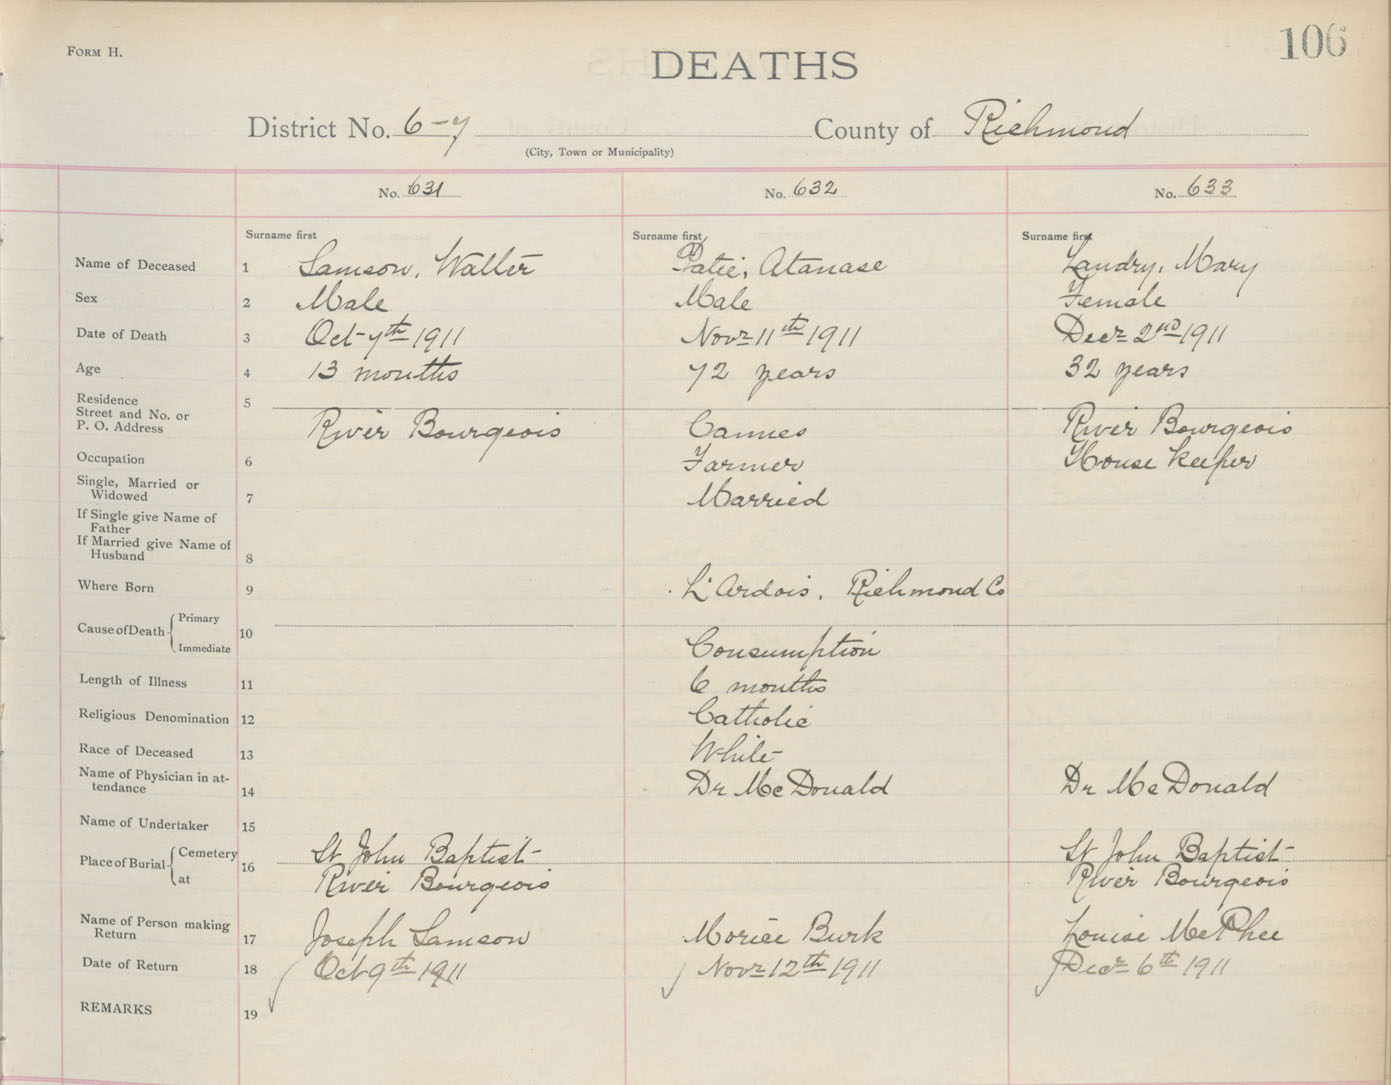 FORM H.
106
DEATHS
District No. 6-7 County of Richmond
(City, Town or Municipality)
No. 631 No. 632 No. 633
Surname first Surname first Surname first
Name of Deceased 1 Samson, Walter Patie, Atanase Landry, Mary
Sex 2 Male Male Female
Date of Death 3 Oct 7th 1911 Novr 11th 1911 Decr 2nd 1911
Age 4 13 months 72 years 32 years
Residence 5
Street and No. or
P. O. Address River Bourgeois Cannes River Bourgeois
Occupation 6 Farmer House Keeper
Single, Married or
Widowed 7 Married
If Single give Name of
Father
If Married give Name of
Husband 8
Where Born 9 L'Ardois, Richmond Co
Cause of Death Primary 10
Immediate Consumption
Length of Illness 11 6 months
Religious Denomination 12 Catholic
Race of Deceased 13 White
Name of Physician in at-
tendance 14 Dr McDonald Dr McDonald
Name of Undertaker 15
Place of Burial Cemetery 16 St John Baptist St John Baptist
at River Bourgeois River Bourgeois
Name of Person making
Return 17 Joseph Samson Moriee Burk Louise McPhee
Date of Return 18 Oct 9th 1911 Novr 12th 1911 Decr 6th 1911
REMARKS 19